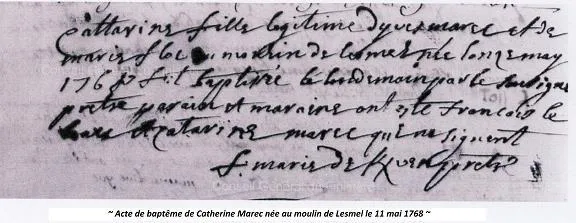 Cattarine fille legitime dyves marec et de
marie f du moulin de lesmel née lonze may
1768 fut baptisée le lendemain par le soussigné
pretre parain et maraine ont esté francois le
et catarine marec qui ne signent
f. marie de pretre
Conseil Général du Finistère
~ Acte de baptême de Catherine Marec née au moulin de Lesmel le 11 mai 1768 ~